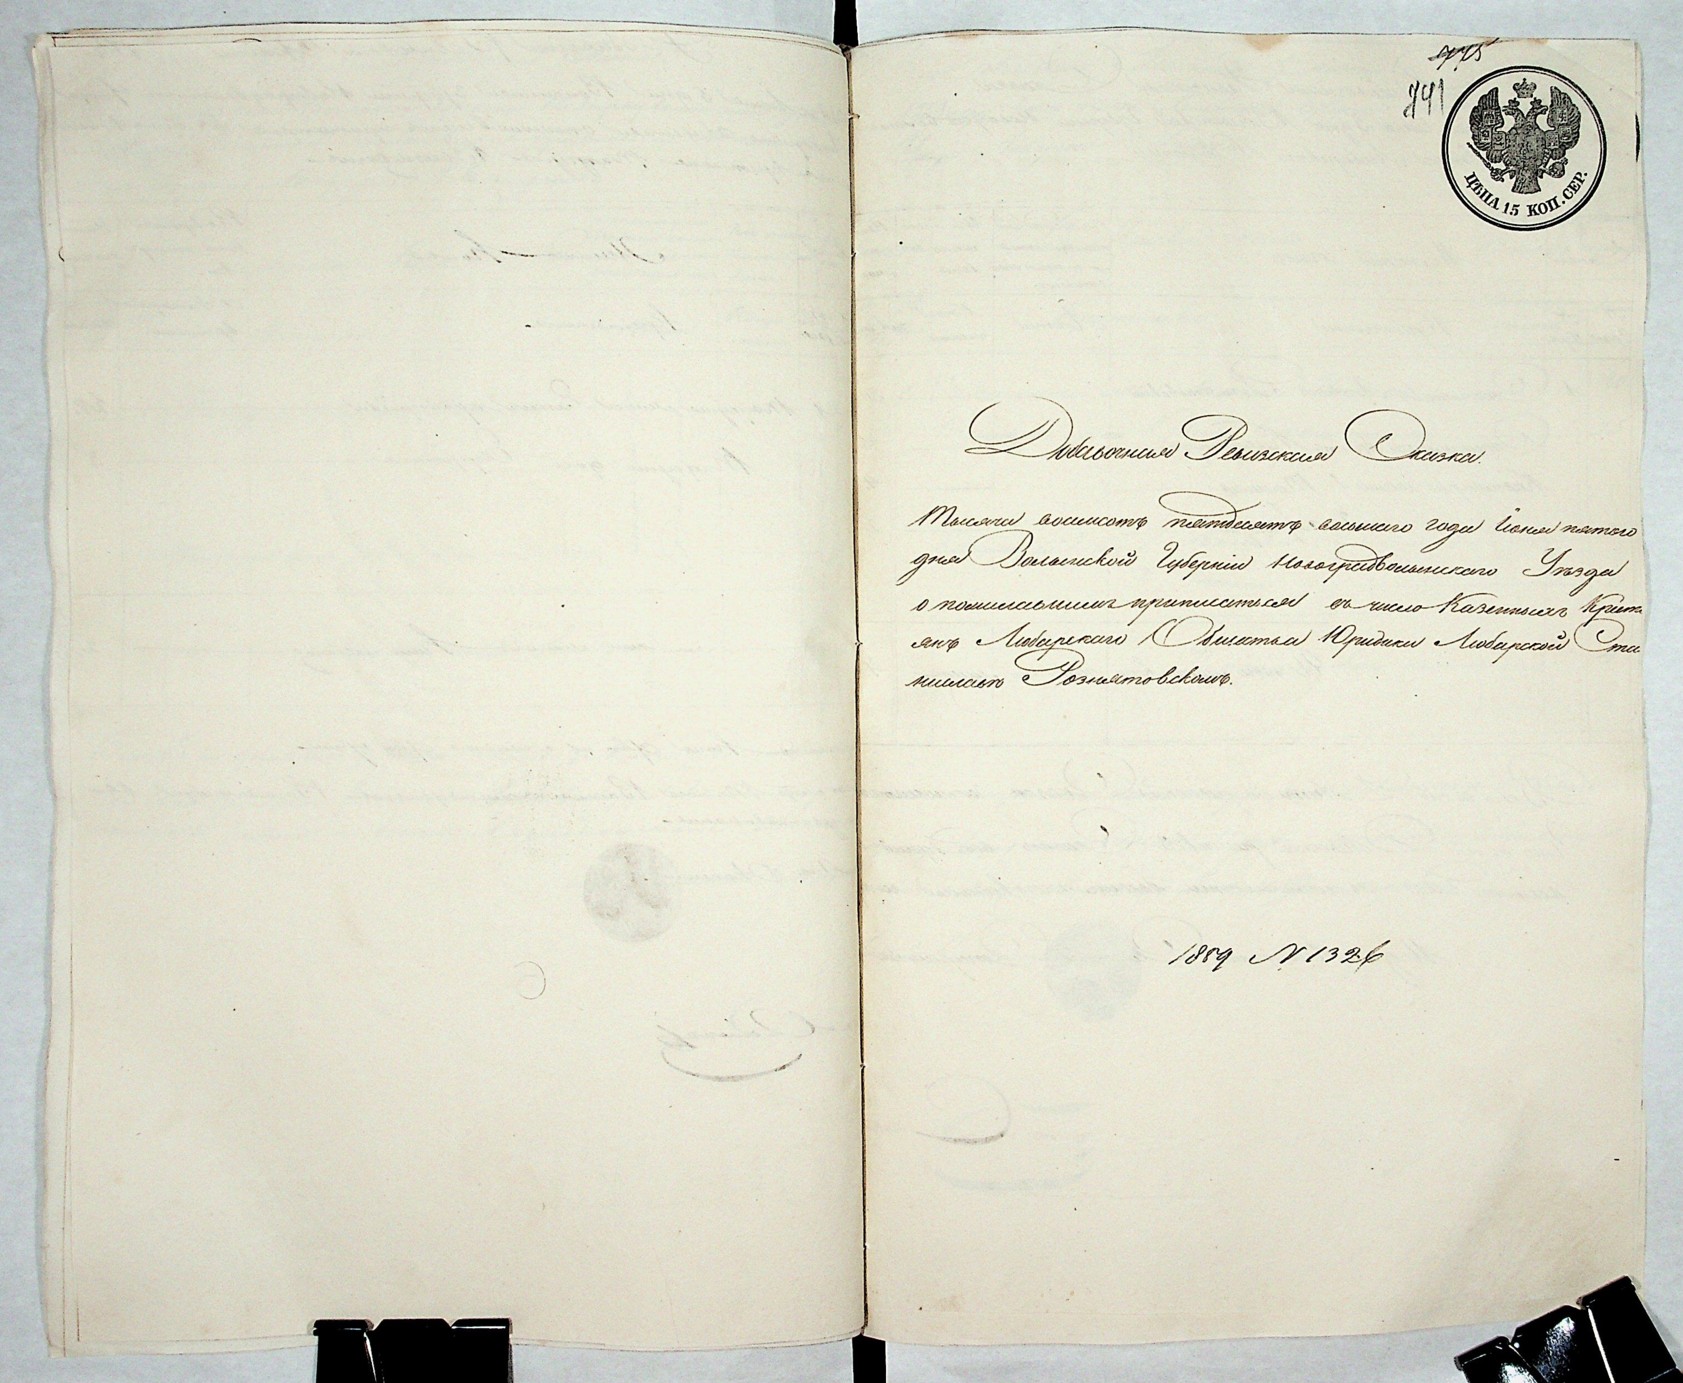 775
741
ЦѢНА 15 КОП. СЕР.
Добавочная Ревизская Сказка.
Тысяча восемсотъ пятдесятъ восьмаго года Іюня пятого
дня Волынской Губерніи Новоградволынского Уѣзда
о пожелавшемъ приписаться въ число Казенныхъ Крестъ
янъ Любарскаго Общества Юридики Любарской Ста
ниславѣ Рознятовскомъ.
1859 N 1326